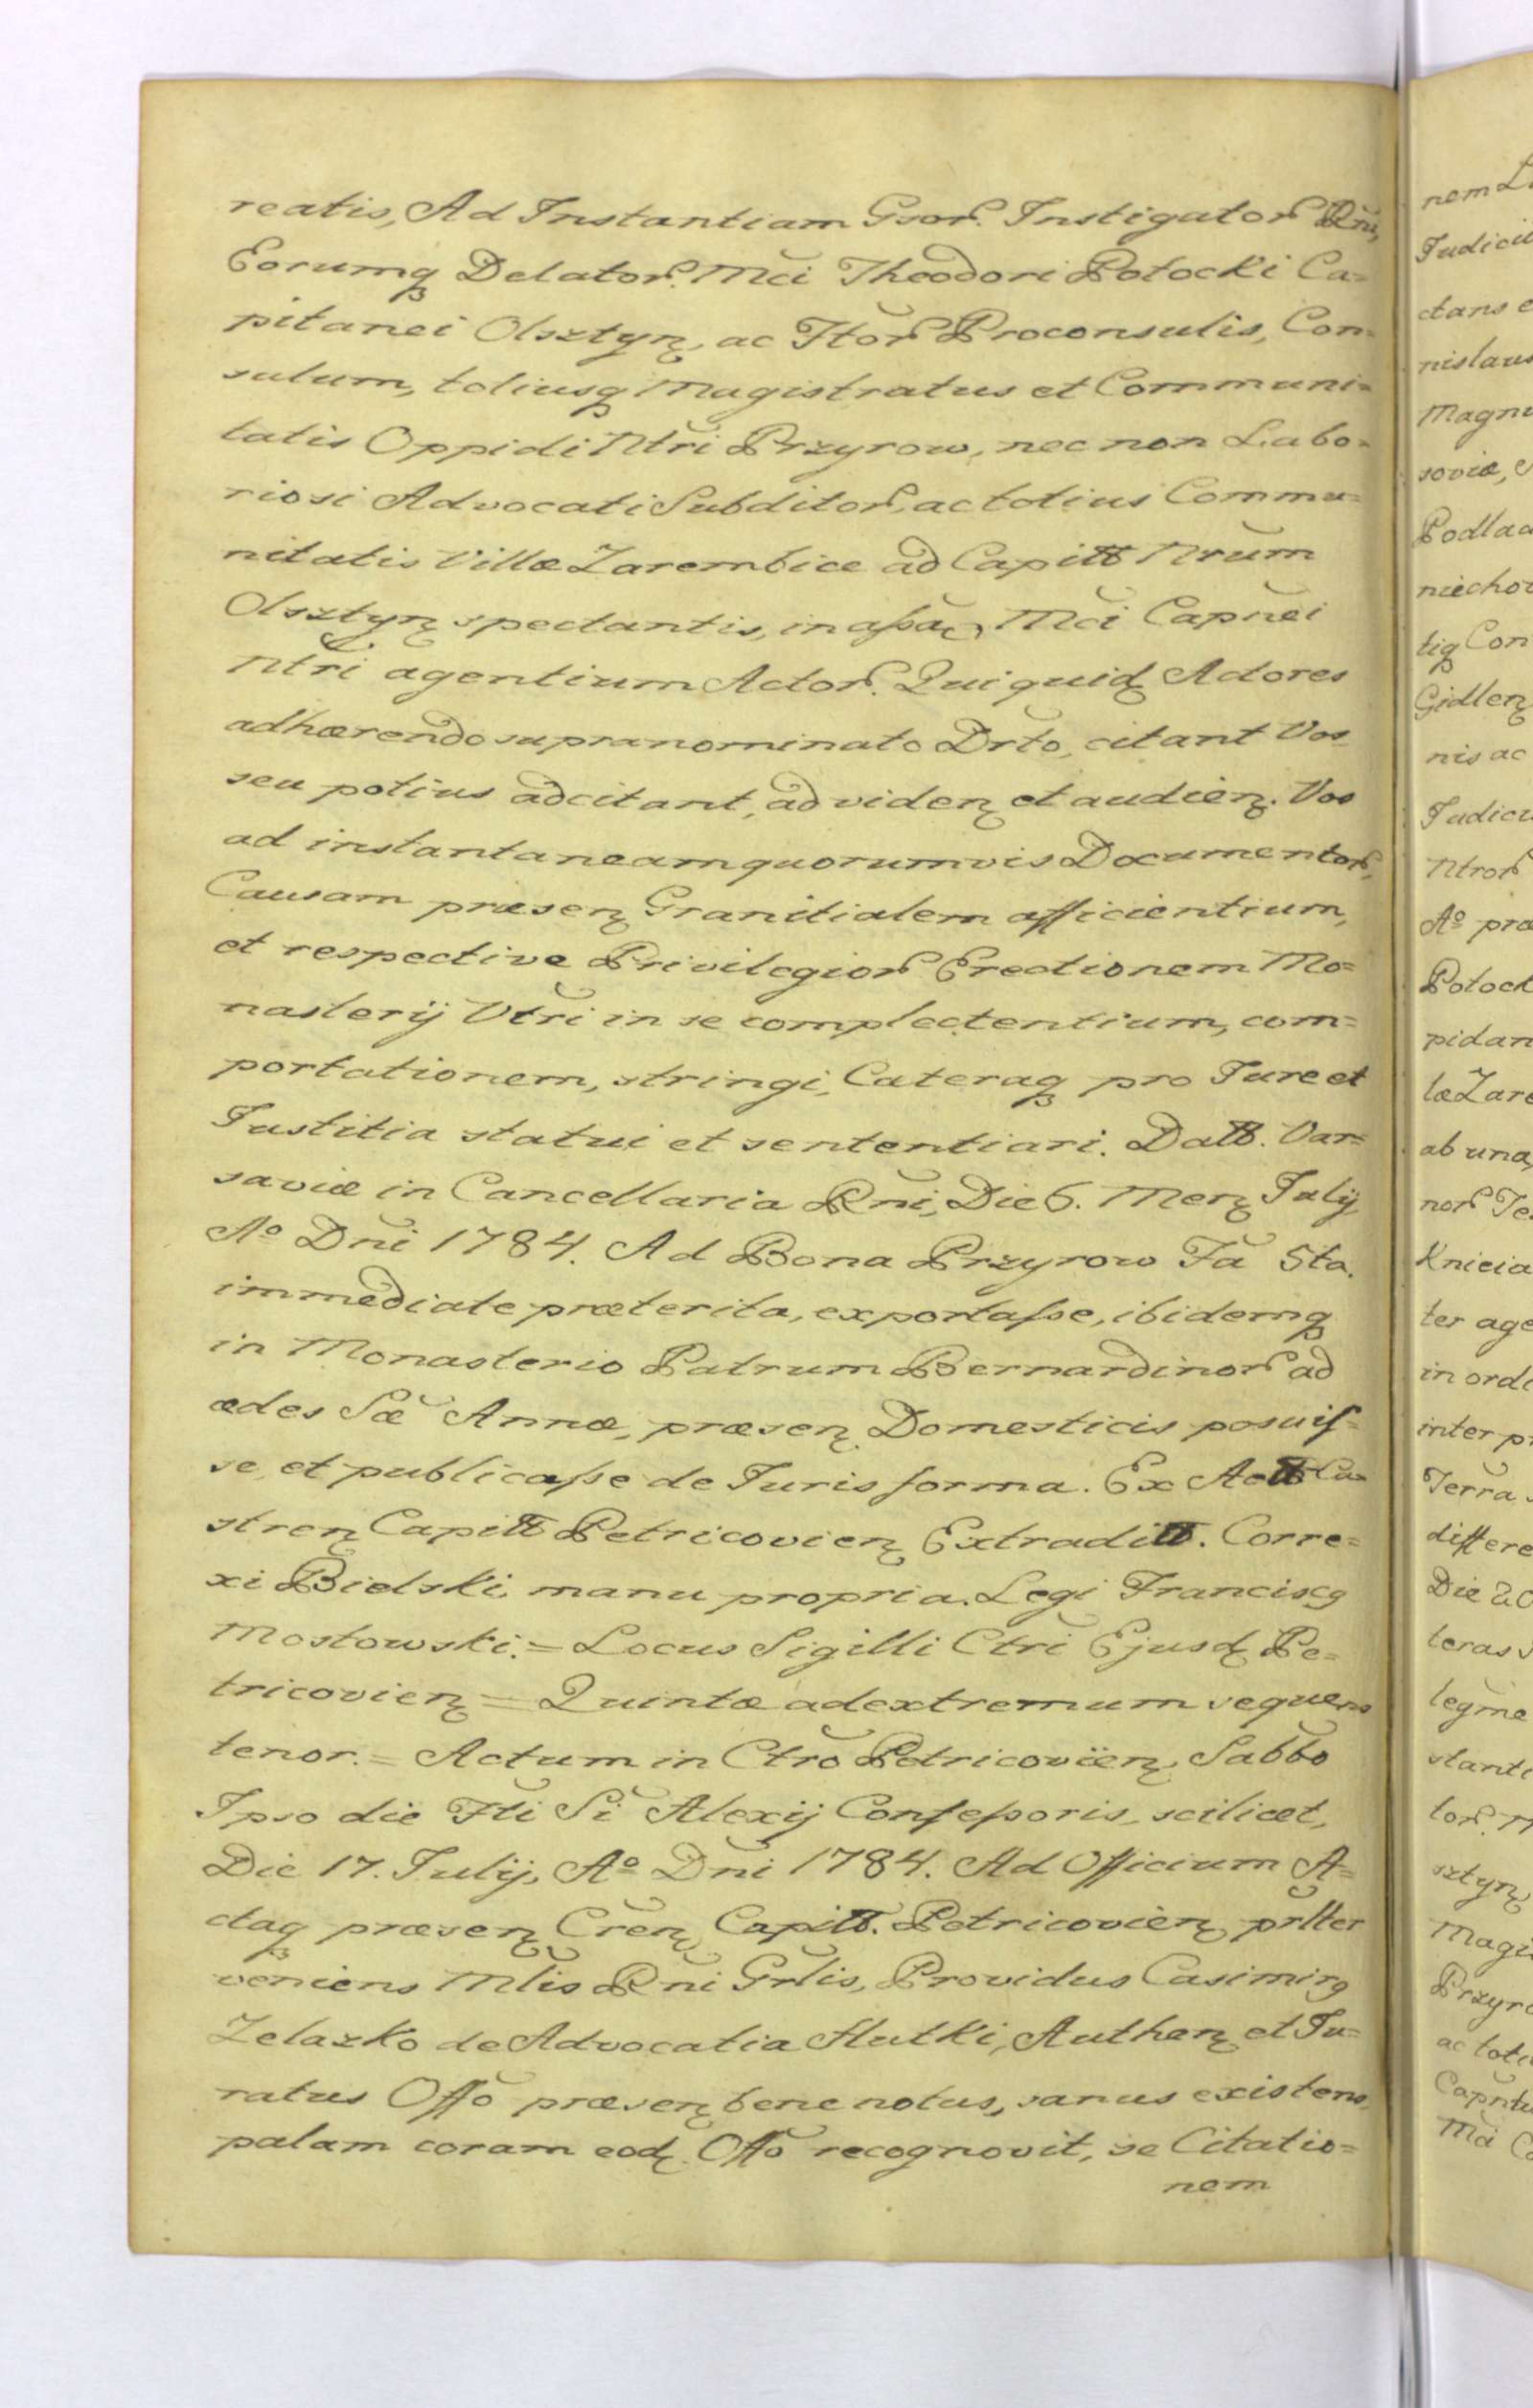 reatis, Ad Instantiam Gsor. Instigator Rni,
Eorumq Delator. Mci Theodori Potocki Ca=
pitanei Olsztyn, ac Htor Proconsulis, Con=
sulum, totiusq Magistratus et Communi=
tatis Oppidi Ntri Przyrow, nec non Labo=
riosi Advocati Subditor, ac totius Commu=
nitatis Villæ Zarembice ad Capitt Ntrum
Olsztyn spectantis, in Mci Capnei
Ntri agentium Actor. Qui quid Actores
adhærendo supranominato Drto, citant Vos
seu potius adcitant, ad viden et audien. Vos
ad instantaneam quorumvis Documentor,
Causam præsen Granitialem afficientium,
et respective Privilegior Erectionem Mo=
nasterij Vtri in se complectentium, com=
portationem, stringi, Cæteraq pro Jure et
Justitia statui et sententiari. Datt. Var=
saviæ in Cancellaria Rni, Die 6. Men July
Aº Dni 1784. Ad Bona Przyrow Fa 5ta.
immediate præterita, exportasse, ibidemq
in Monasterio Patrum Bernardinor ad
ædes Sæ Annæ, præsen Domesticis posuis=
se, et publicasse de Juris forma. Ex Actt Ca=
stren Capitt Petricovien Extraditt. Corre=
xi Bielski manu propria. Legi Franciscq
Mostowski. = Locus Sigilli Ctri Ejusd Pe=
tricovien = Quintæ ad extremum sequens
tenor. = Actum in Ctro Petricovien, Sabbo
Ipso die Fti Si Alexij Confessoris, scilicet,
Die 17. Julij, Aº Dni 1784. Ad Officium A=
ctaq præsen Cren Capitt. Petricovien prltter
veniens Mlis Rni Grlis, Providus Casimirq
Zelazko de Advocatia Hutki, Authen et Ju=
ratus Offo præsen bene notus, sanus existens,
palam coram eod. Offo recognovit, se Citatio=
nem
nem
Judicii
ctans
nislaus
Magn
soviæ,
Podla
niecho
tiq Con
Gidlen
nis ac
Judici
Ntror
Aº præ
Potock
pidan
læ Zar
ab una,
nor Te
Knieia
ter age
in ord
inter p
Terra
differe
Die 20
teras
legme
stant
tor.
sztyn
Magi
Przyr
ac toti
Capnt
Mci